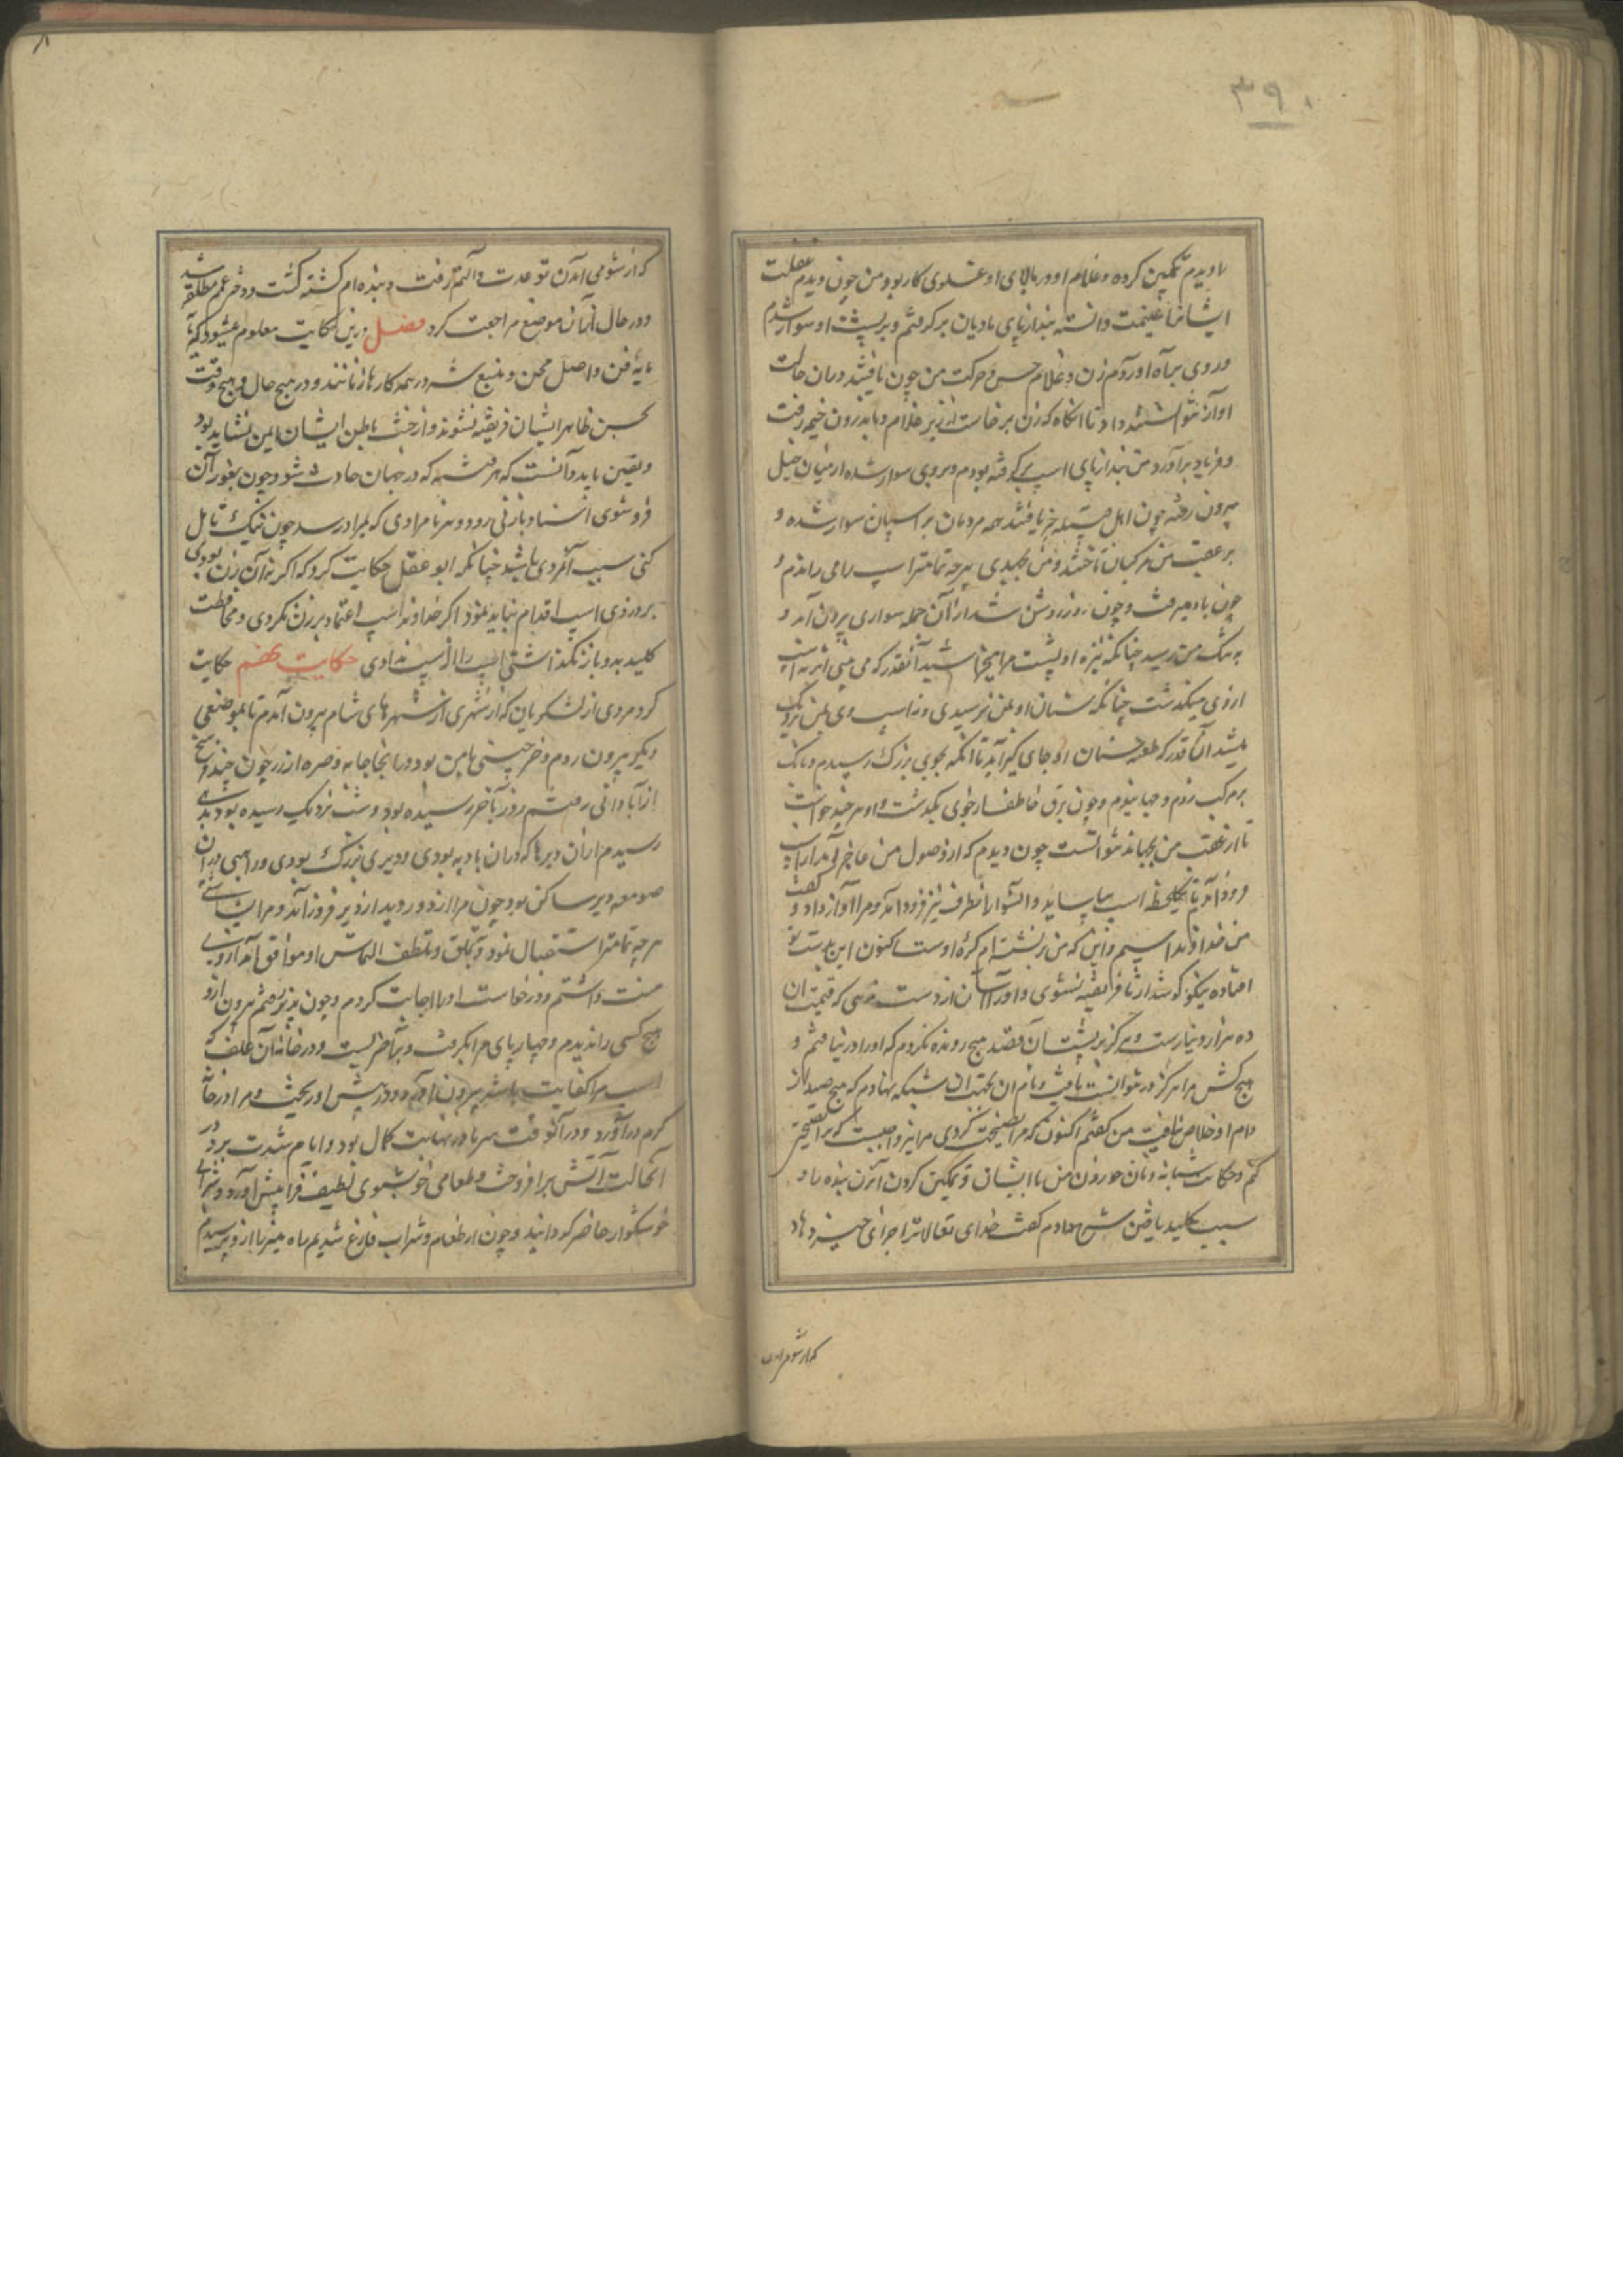 ۳۹۰
را دیدم تمکین کرده و غلام او در بالای او مشغول کار بود من چون دیدم غفلت
ایشانرا غنیمت دانسته بند از پای مادیان برگرفتم و بر پشت او سوار شدم
و روی براه آوردم زن و غلام حس و حرکت من چون یافتند در ان حالت
آواز نتوانستند داد تا انگاه که زن برخاست از زیر غلام و باندرون خیمه رفت
و فریاد برآورد من بند از پای اسپ برگرفته بودم و بروی سوار شده از میان خیل
بیرون رفته چون اهل قبیله خبر یافتند همه مردمان بر اسپان سوار شده و
بر عقب من مرکبان تاختند و من بجدی هرچه تمامتر اسپ را می راندم و
چون باد میرفت و چون روز روشن شد از آن جمله سواری بیرون آمد و
به من رسید چنانکه نیزه او پشت مرا آنقدر که می بینی اثر
از وی میگذشت چنانکه سنان او بمن نرسیدی و نه اسپ وی بمن نزدیک
میشد آنقدر که طعنه سنان او جای گیر آید تا آنکه بجوی بزرگ رسیدم و بانک
بر مرکب زدم و جهانیدم و چون برق خاطف از جوی بگذشت و او هر چند خواست
تا از عقب من بجهاند نتوانست چون دیدم که از وصول من عاجز آمد از اسپ
فرود آمدم تا یکلحظه اسپ بیاساید و آنسوار از انطرف نیز فرود آمد و مرا آواز داد و گفت
من خداوند اسپم و این که من بر نشسته ام کره اوست اکنون این بدست تو
افتاده نیکو گوش دار تا فریفته نشوی و او را آسان از دست ندهی که قیمت ان
ده هزار دینارست و هرگز بر پشت آن قصد هیچ رونده نکردم که او را در نیافتم و
هیچ کس مرا هرگز در نتوانست یافت و نام ان بجهت ان شبکه نهادم که هیچ صید از
دام او خلاص نیافت من گفتم اکنون که مرا نصیحت کردی مرا نیز واجبست که ترا نصیحت
کنم و حکایت شبانه و نان خوردن من با ایشان و تمکین کردن آنزن بنده را و
سبب کلید یافتن شرح دادم گفت خدای تعالا ترا جزای خیر دهاد
که از شومی آمدن
که از شومی آمدن تو عدت و آلتم رفت و بنده ام کشته گشت و دختر عمم مطلقه شد
و در حال از آن موضع مراجعت کرد فصل درین حکایت معلوم میشود که
مایهٔ فتن و اصل محن و منبع شر در همه کارها زنانند و در هیچ حال و هیچ وقت
بحسن ظاهر ایشان فریفته نشوند و از خبث باطن ایشان ایمن نشاید بود
و یقین باید دانست که هر فتنه که در جهان حادث شود چون بغور آن
فرو شوی اسناد با زنی رود و هر نامرادی که بمراد رسد چون نیک تامل
کنی سبب آنمردی باشد چنانکه ابو عقل حکایت کرد که اگر نه آن زن بودی
بر دزدی اسپ اقدام ننمود اگر خداوند اسپ اعتماد بر زن نکردی و محافظت
کلید بدو باز نگذاشتی اسپ را از دست ندادی حکایت حکایت
کرد مردی از لشکریان که از شهری از شهرهای شام بیرون آمدم تا بموضعی
دیکر بیرون روم و خرجینی با من بود و در انجا جامه و صره از زر چون چند فرسخ
از آبادانی رفتم روز بآخر رسیده بود و شب نزدیک رسیده بود بدیری
رسیدم از ان دیرها که در ان بادیه بودی و دیری بزرگ بودی و راهبی در ان
صومعه دیر ساکن بود چون مرا از دور دید از دیر فرود آمد و مرا ببشاشتی
هرچه تمامتر استقبال نمود و بتملق و تلطف التماس او موافق آمد از وی
منت داشتم و درخواست او را اجابت کردم و چون بدیر رفتم بیرون از و
هیچ کسی را ندیدم و چهارپای مرا بگرفت و بآخر بست و در خانه آن علف که
اسپ مرا کفایت باشد بیرون آورد و در پیش او ریخت و مرا در خانه
گرم درآورد و در آنوقت سرما در نهایت کمال بود و ایام شدت برد در
آنحالت آتش برافروخت و طعامی خوشبوی لطیف فراپیش آورد و شرابی
خوشگوار حاضر گردانید و چون از طعام و شراب فارغ شدیم راه از و پرسیدم